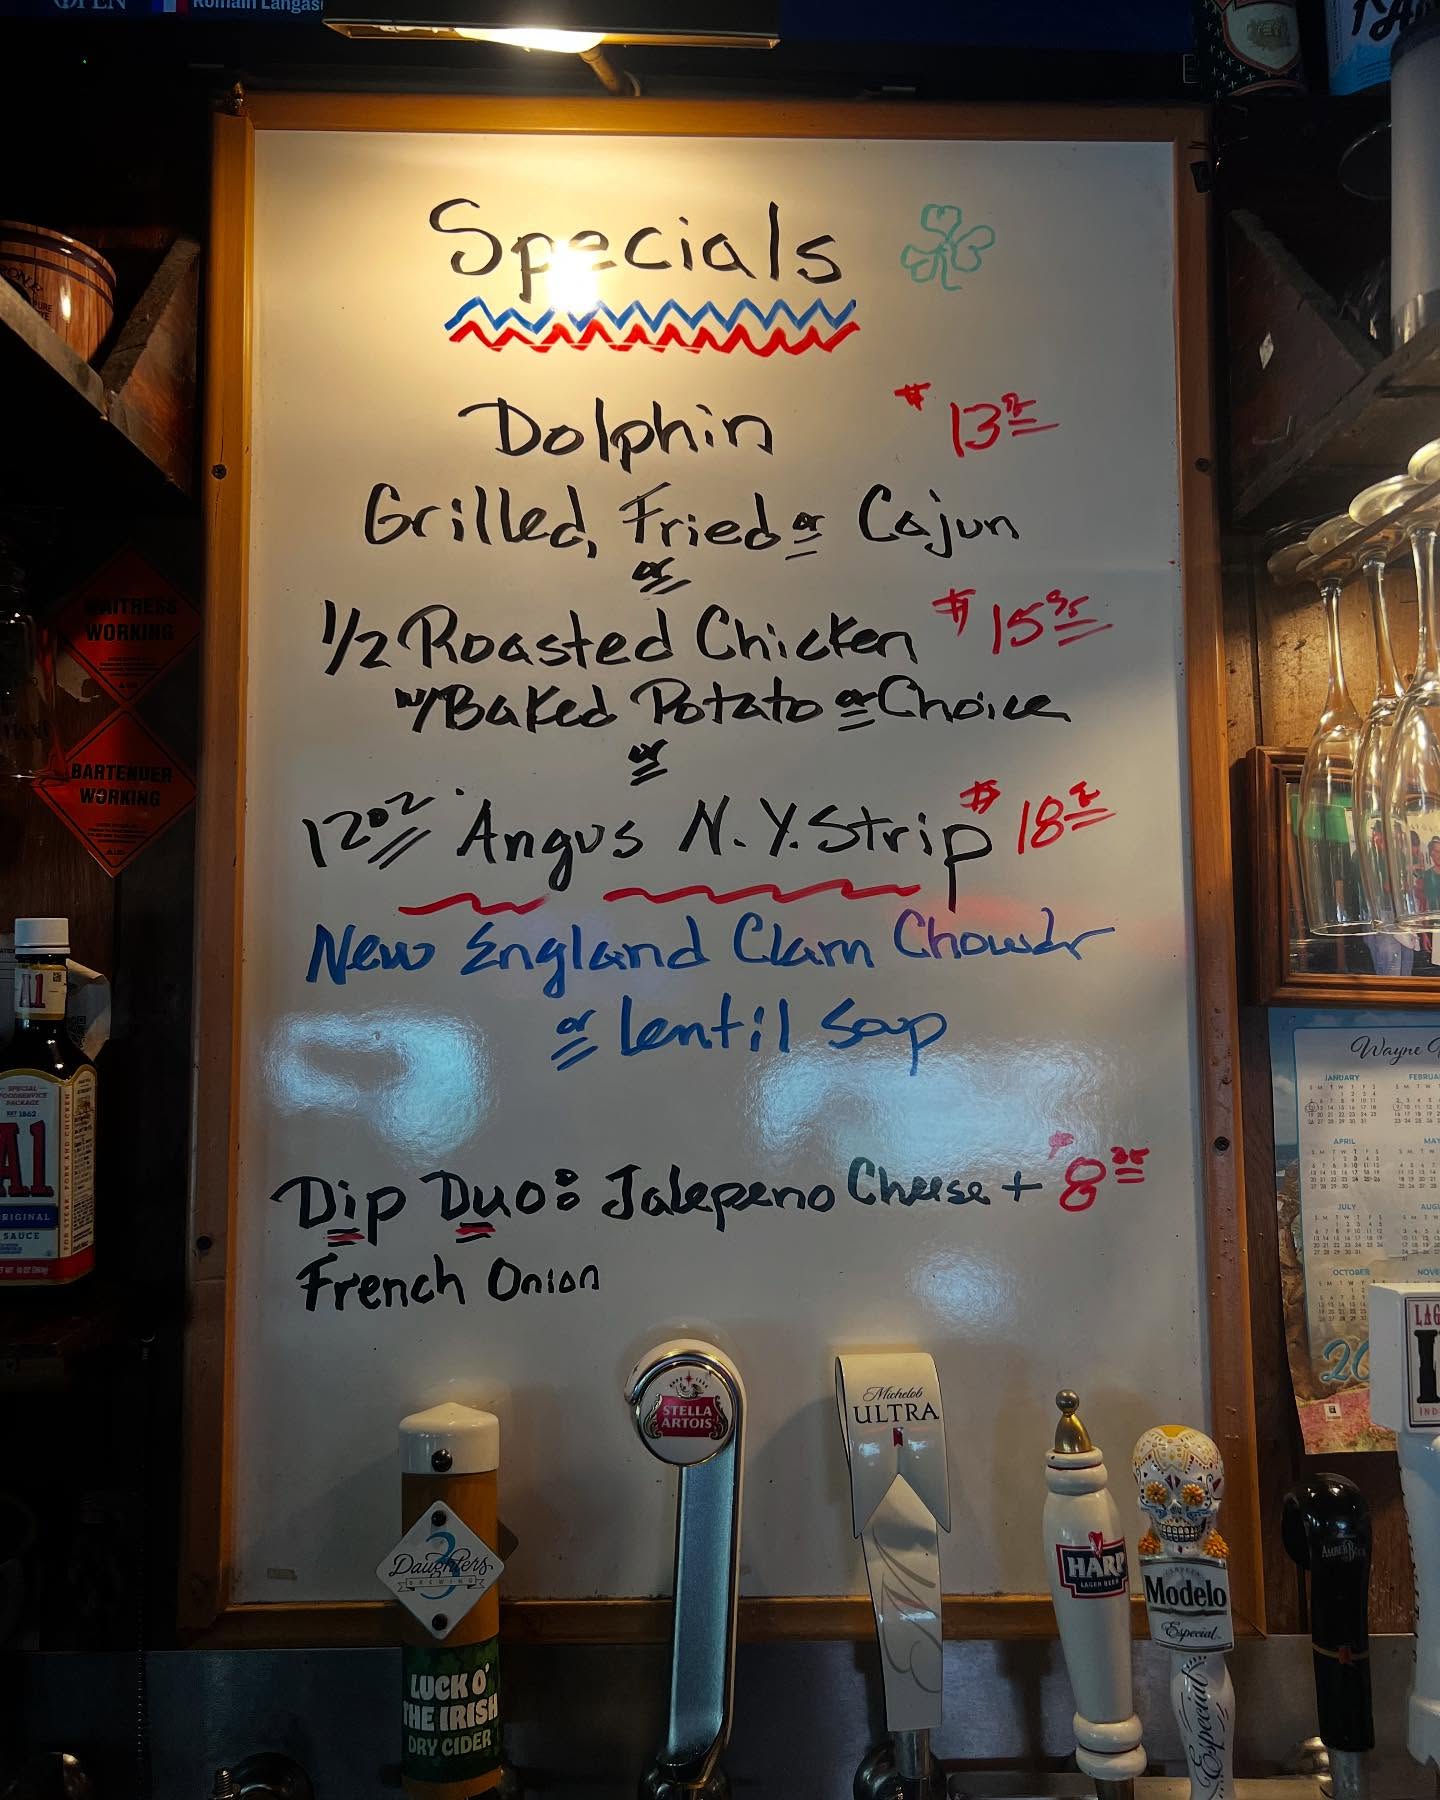 OPEN
Romain Langas
Specials
Dolphin
Grilled, Fried or Cajun
or
1/2 Roasted Chicken $15.95
w/Baked Potato or Choice
or
12oz Angus N.Y. Strip $18
New England Clam Chowdr
or lentil Soup
Dip Duo: Jalepeno Cheese + $8
French Onion
WAITRESS
WORKING
BARTENDER
WORKING
A1
SPECIAL
FOODSERVICE
PACKAGE
EST 1862
A1
ORIGINAL
SAUCE
FOR STEAK PORK AND CHICKEN
Wayne
JANUARY FEBRUAR
APRIL MAY
JULY AUGU
OCTOBER NOVE
20
3
Daughters
BREWING
LUCK O'
THE IRISH
DRY CIDER
STELLA
ARTOIS
Michelob
ULTRA
HARP
LAGER BEER
CERVEZA
Modelo
Especial
Especial
AMBER BOCK
LAG
IND